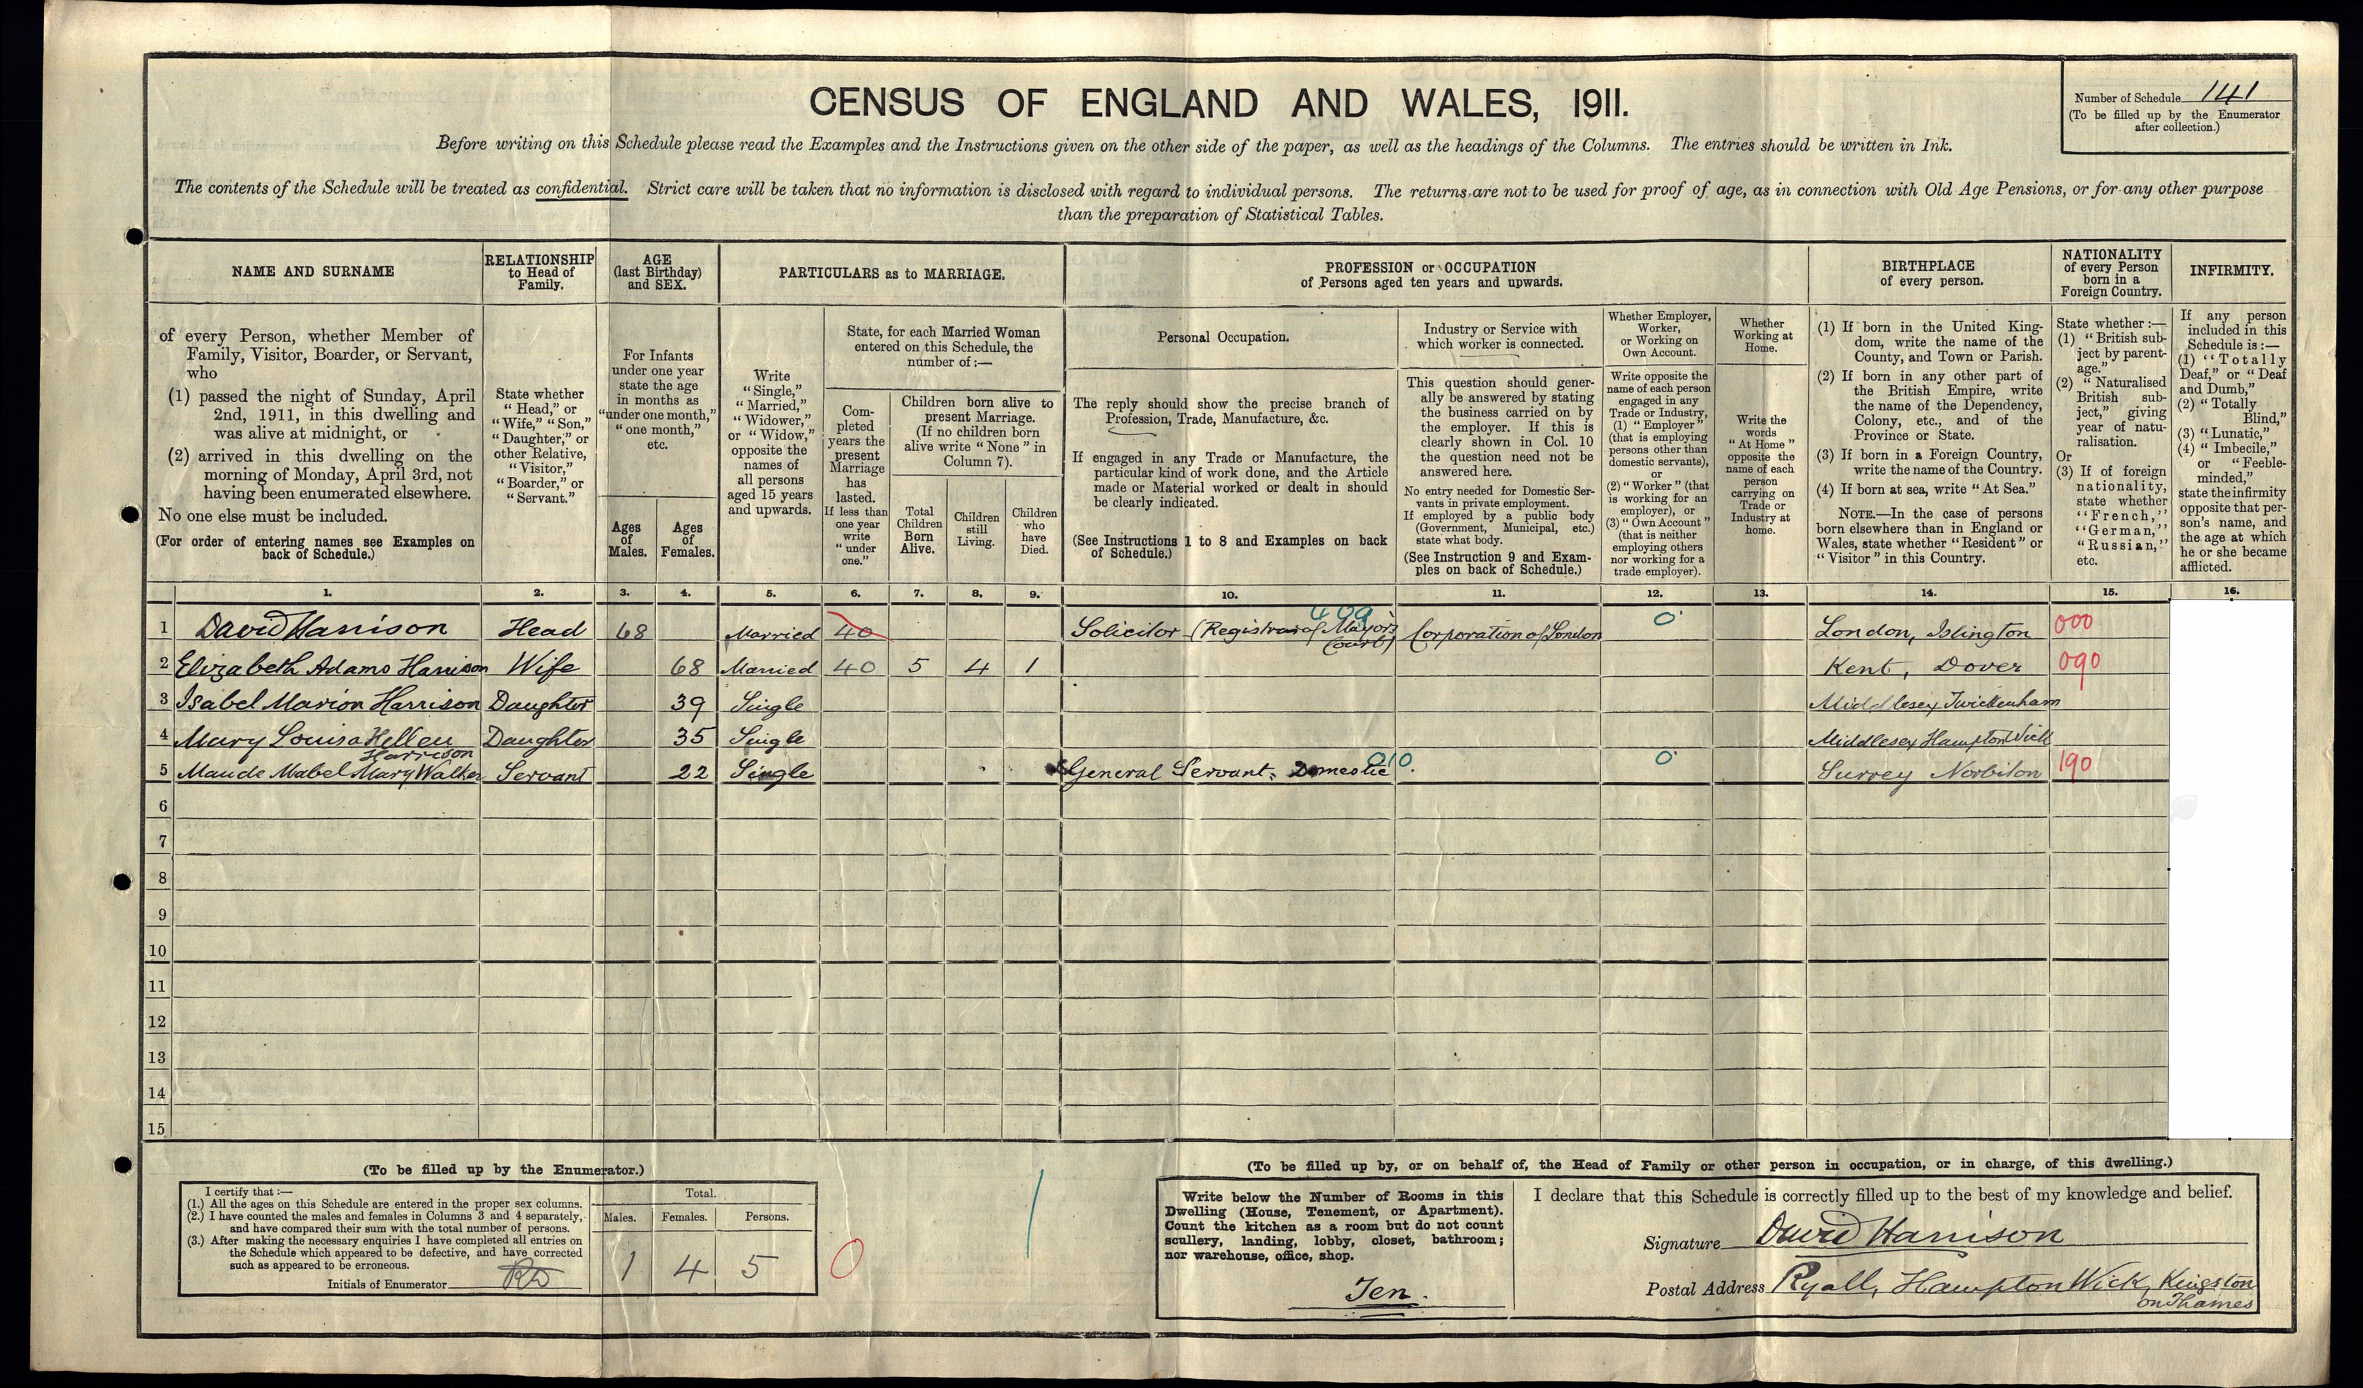 CENSUS OF ENGLAND AND WALES, 1911.
Number of Schedule 141
(To be filled up by the Enumerator
after collection.)
Before writing on this Schedule please read the Examples and the Instructions given on the other side of the paper, as well as the headings of the Columns. The entries should be written in Ink.
The contents of the Schedule will be treated as confidential. Strict care will be taken that no information is disclosed with regard to individual persons. The returns are not to be used for proof of age, as in connection with Old Age Pensions, or for any other purpose
than the preparation of Statistical Tables.
NAME AND SURNAME
of every Person, whether Member of
Family, Visitor, Boarder, or Servant,
who
(1) passed the night of Sunday, April
2nd, 1911, in this dwelling and
was alive at midnight, or
(2) arrived in this dwelling on the
morning of Monday, April 3rd, not
having been enumerated elsewhere.
No one else must be included.
(For order of entering names see Examples on
back of Schedule.)
RELATIONSHIP
to Head of
Family.
State whether
"Head," or
"Wife," "Son,"
"Daughter," or
other Relative,
"Visitor,"
"Boarder," or
"Servant."
AGE
(last Birthday)
and SEX.
For Infants
under one year
state the age
in months as
"under one month,"
"one month,"
etc.
Ages
of
Males.
Ages
of
Females.
PARTICULARS as to MARRIAGE.
Write
"Single,"
"Married,"
"Widower,"
or "Widow,"
opposite the
names of
all persons
aged 15 years
and upwards.
State, for each Married Woman
entered on this Schedule, the
number of:—
Com-
pleted
years the
present
Marriage
has
lasted.
If less than
one year
write
"under
one."
Children born alive to
present Marriage.
(If no children born
alive write "None" in
Column 7).
Total
Children
Born
Alive.
Children
still
Living.
Children
who
have
Died.
PROFESSION or OCCUPATION
of Persons aged ten years and upwards.
Personal Occupation.
The reply should show the precise branch of
Profession, Trade, Manufacture, &c.
If engaged in any Trade or Manufacture, the
particular kind of work done, and the Article
made or Material worked or dealt in should
be clearly indicated.
(See Instructions 1 to 8 and Examples on back
of Schedule.)
Industry or Service with
which worker is connected.
This question should gener-
ally be answered by stating
the business carried on by
the employer. If this is
clearly shown in Col. 10
the question need not be
answered here.
No entry needed for Domestic Ser-
vants in private employment.
If employed by a public body
(Government, Municipal, etc.)
state what body.
(See Instruction 9 and Exam-
ples on back of Schedule.)
Whether Employer,
Worker,
or Working on
Own Account.
Write opposite the
name of each person
engaged in any
Trade or Industry,
(1) "Employer"
(that is employing
persons other than
domestic servants),
or
(2) "Worker" (that
is working for an
employer), or
(3) "Own Account"
(that is neither
employing others
nor working for a
trade employer).
Whether
Working at
Home.
Write the
words
"At Home"
opposite the
name of each
person
carrying on
Trade or
Industry at
home.
BIRTHPLACE
of every person.
(1) If born in the United King-
dom, write the name of the
County, and Town or Parish.
(2) If born in any other part of
the British Empire, write
the name of the Dependency,
Colony, etc., and of the
Province or State.
(3) If born in a Foreign Country,
write the name of the Country.
(4) If born at sea, write "At Sea."
NOTE.—In the case of persons
born elsewhere than in England or
Wales, state whether "Resident" or
"Visitor" in this Country.
NATIONALITY
of every Person
born in a
Foreign Country.
State whether:—
(1) "British sub-
ject by parent-
age."
(2) "Naturalised
British sub-
ject," giving
year of natu-
ralisation.
Or
(3) If of foreign
nationality,
state whether
"French,"
"German,"
"Russian,"
etc.
INFIRMITY.
If any person
included in this
Schedule is:—
(1) "Totally
Deaf," or "Deaf
and Dumb,"
(2) "Totally
Blind,"
(3) "Lunatic,"
(4) "Imbecile,"
or "Feeble-
minded,"
state the infirmity
opposite that per-
son's name, and
the age at which
he or she became
afflicted.
1. 2. 3. 4. 5. 6. 7. 8. 9. 10. 11. 12. 13. 14. 15. 16.
1 David Harrison Head 68 Married 40 Solicitor (Registrar of Mayor's Court) 409 Corporation of London 0 London, Islington 000
2 Elizabeth Adams Harrison Wife 68 Married 40 5 4 1 Kent, Dover 090
3 Isabel Marion Harrison Daughter 39 Single Middlesex Twickenham
4 Mary Louisa Hellen Harrison Daughter 35 Single Middlesex Hampton Wick
5 Maude Mabel Mary Walker Servant 22 Single General Servant, Domestic 010 0 Surrey Norbiton 190
6
7
8
9
10
11
12
13
14
15
(To be filled up by the Enumerator.)
I certify that:—
(1.) All the ages on this Schedule are entered in the proper sex columns.
(2.) I have counted the males and females in Columns 3 and 4 separately,
and have compared their sum with the total number of persons.
(3.) After making the necessary enquiries I have completed all entries on
the Schedule which appeared to be defective, and have corrected
such as appeared to be erroneous.
Initials of Enumerator
Total.
Males. Females. Persons.
1 4 5
0
(To be filled up by, or on behalf of, the Head of Family or other person in occupation, or in charge, of this dwelling.)
Write below the Number of Rooms in this
Dwelling (House, Tenement, or Apartment).
Count the kitchen as a room but do not count
scullery, landing, lobby, closet, bathroom;
nor warehouse, office, shop.
Ten.
I declare that this Schedule is correctly filled up to the best of my knowledge and belief.
Signature David Harrison
Postal Address Ryall, Hampton Wick, Kingston
on Thames